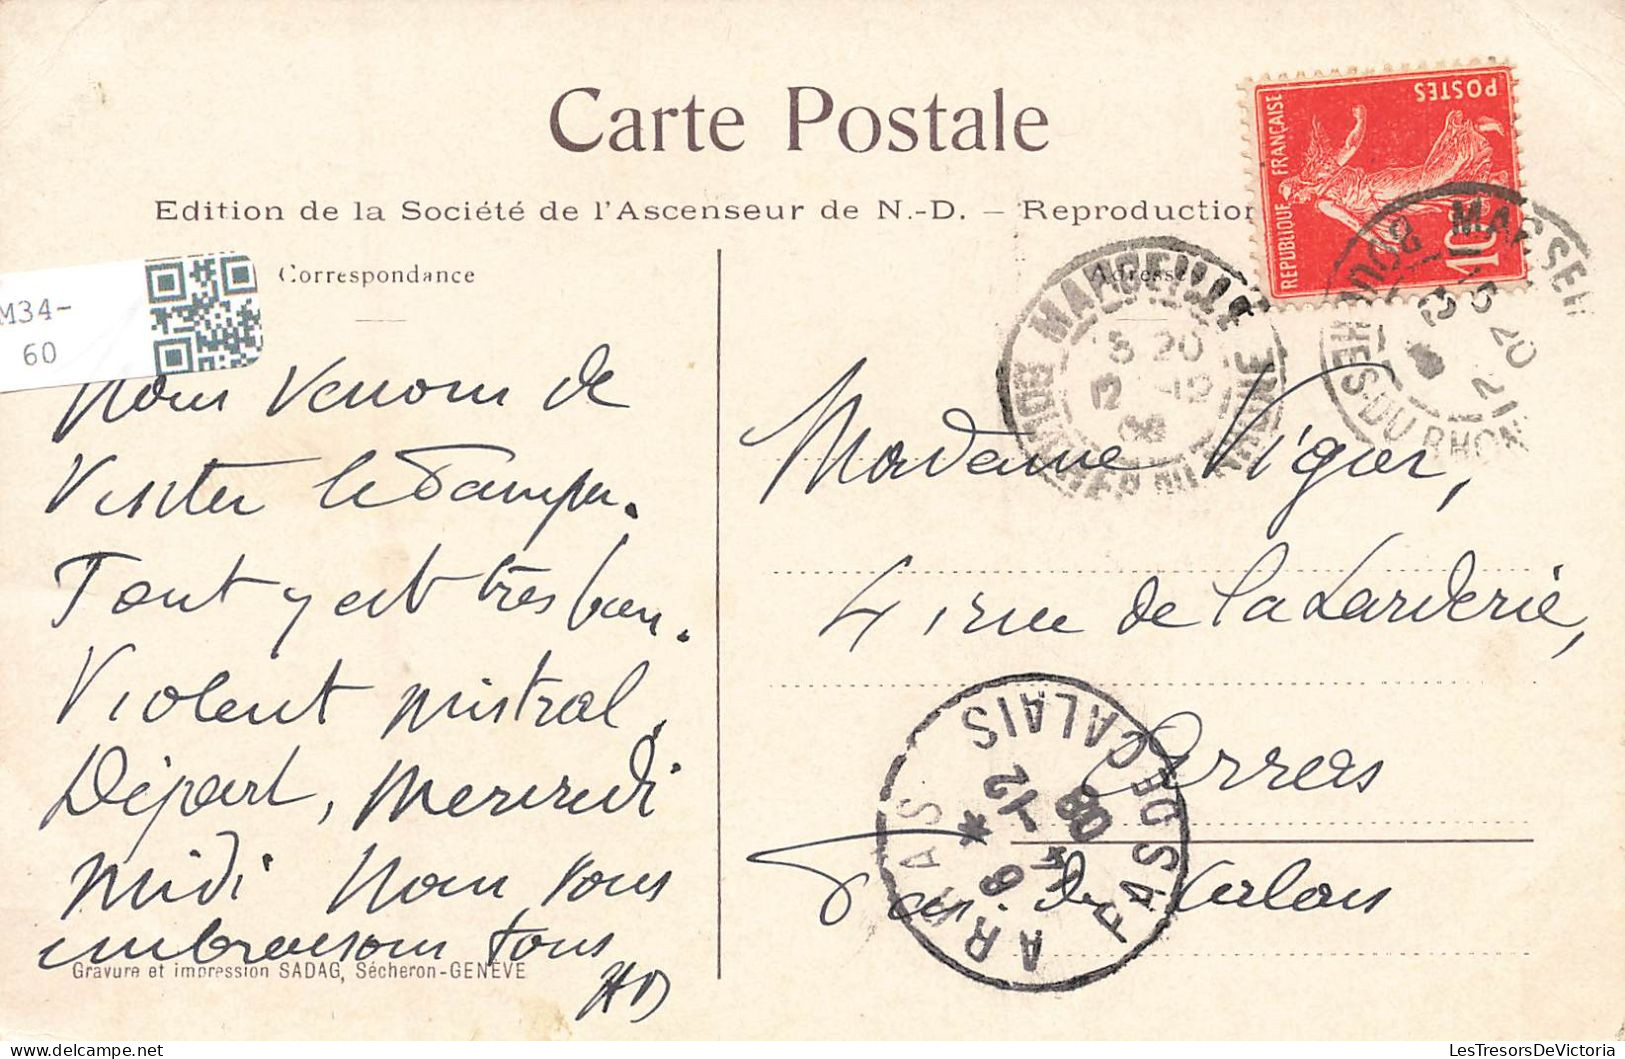 Carte Postale
Edition de la Société de l'Ascenseur de N.-D. — Reproduction
Correspondance
Adresse
M34-
60
REPUBLIQUE FRANÇAISE
POSTES
10
MARSEILLE
5 20
12 -12
08
BOUCHES DU RHONE
MARSEI
5 20
12
BOUCHES-DU-RHON
Nous venons de
Visiter le
Tout y est très bien.
Violent mistral.
Départ, mercredi
midi Nous vous
embrassons tous
HD
Madame Viger,
4 rue de la
Arras
Pas. de Calais
ARRAS
8 * -12
08
PAS DE CALAIS
Gravure et impression SADAG, Sécheron-GENÈVE
LesTresorsDeVictoria